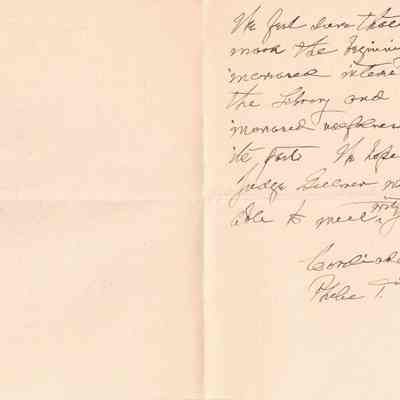 We feel sure that
mark the beginnin
increased intere
the Library and
increased usefulness
its part. We hope
Judge Gilmer
able to meet with
Cordiall
Phebe T.